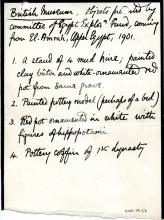 British Museum. Objects presented by
committee of "Egypt Explorn Fund, coming
from El-Amrah, Upper Egypt, 1901.
1. A stand of 4 mud hive, painted
clay and white-ornamented red
pot from same grave.
2. Painted pottery model (perhaps of a bed)
3. Red pot ornamented in white with
figures of hippopotami.
4. Pottery coffin of 1st dynasty